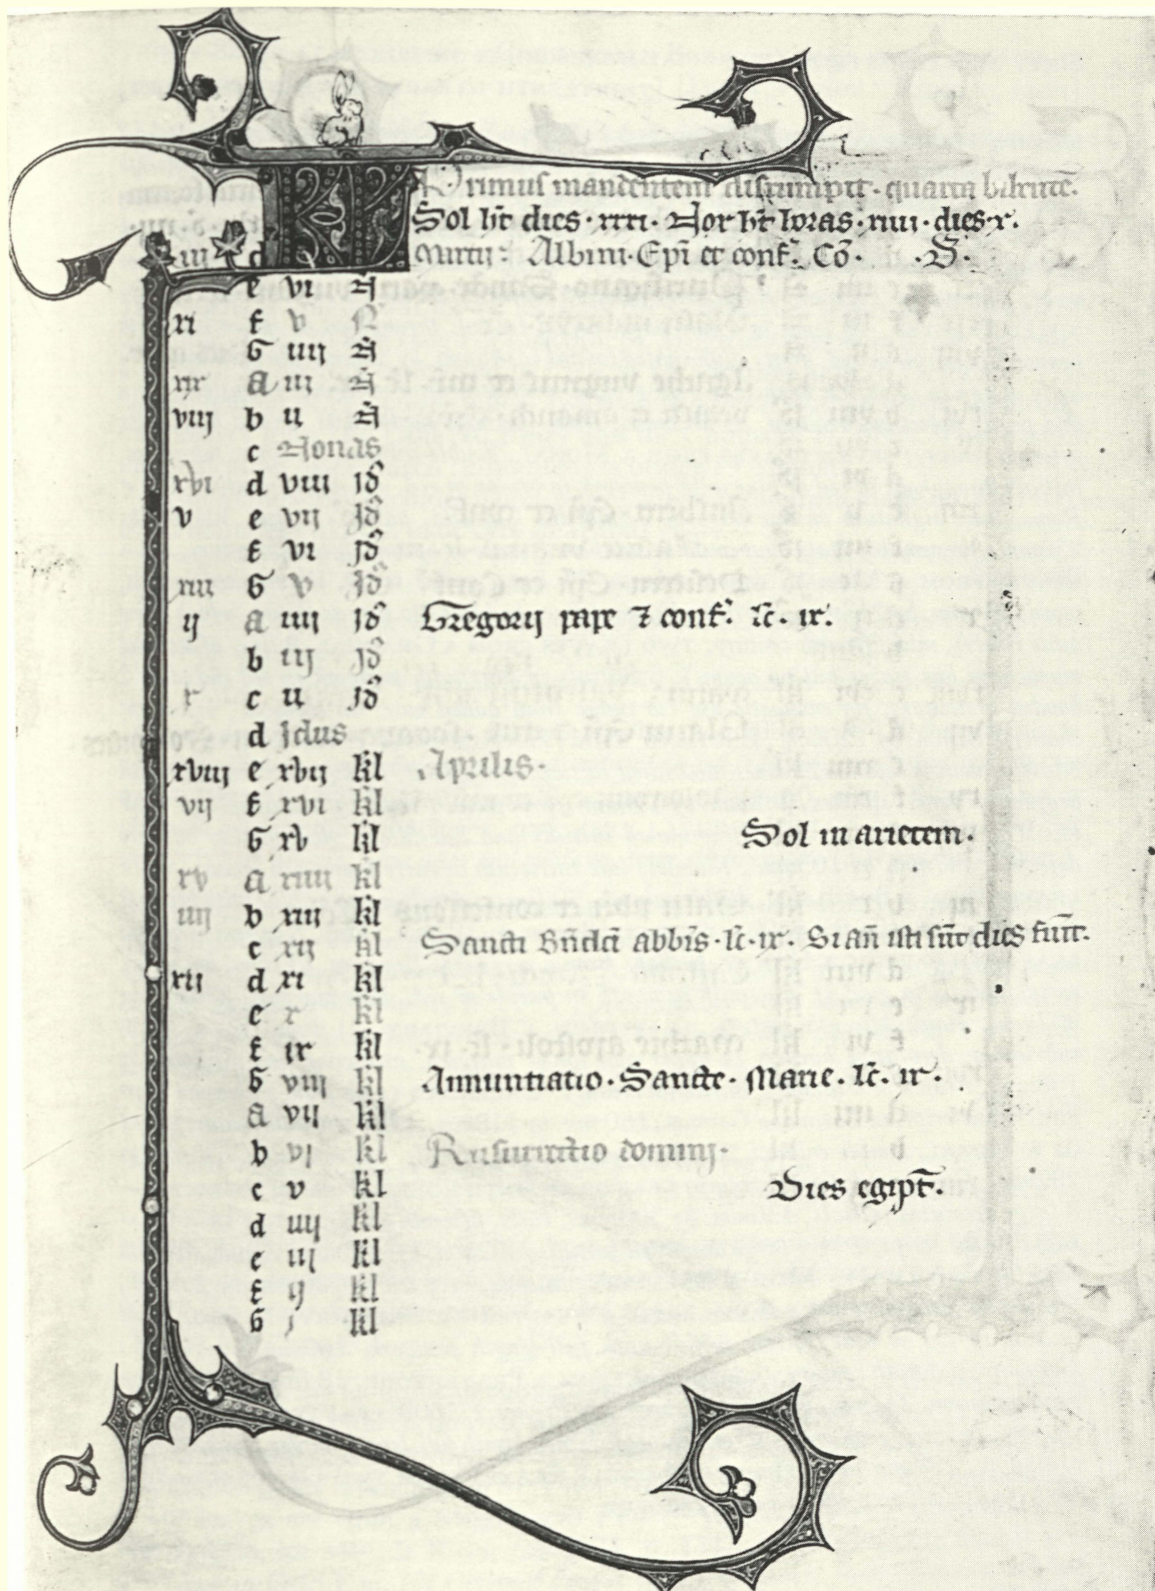 KL Primus mandentem disrumpit · quarta bibente̅.
Sol ht dies · xxxi · Nox ht horas · xiii · dies · x ·
iii d Martii: Albini · Epi et conf. Co̅ · S ·
e vi N
xi f v N
G iiij N
xix a iii N
viij b ii N
c Nonas
xvi d viii Id
v e vii Id
f vi Id
xiii G v Id
ij a iiij Id Gregorij pape ⁊ conf. lc̅ · ix ·
b iij Id
x c ii Id
d Idus
xviii e xvij kl Aprilis ·
vij f xvi kl
G xv kl Sol in arietem ·
xv a xiiii kl
iiij b xiii kl
c xij kl Sancti Bn̅dci̅ abbis · lc̅ · ix · Si an̅ isti su̅t dies
xii d xi kl
e x kl
f ix kl
G viij kl Annuntiatio · Sancte · Marie · lc̅ · ix ·
a vij kl
b vj kl Resurrectio domini ·
c v kl Dies egipt̅ ·
d iiij kl
e iij kl
f ij kl
G j kl